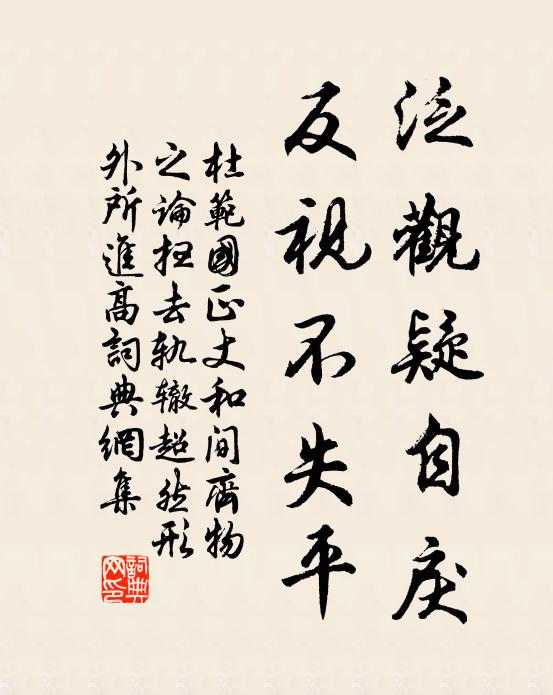 泛觀疑自戾
反視不失平
杜範國正丈和閒齊物
之論扭去軌轍超然形
外所進高詞典網集
詞典網印